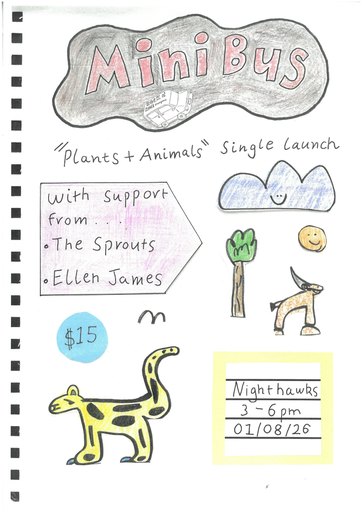 MiniBus
"Plants + Animals" Single Launch
With support
from . . .
• The Sprouts
• Ellen James
$15
Nighthawks
3 - 6pm
01/08/26